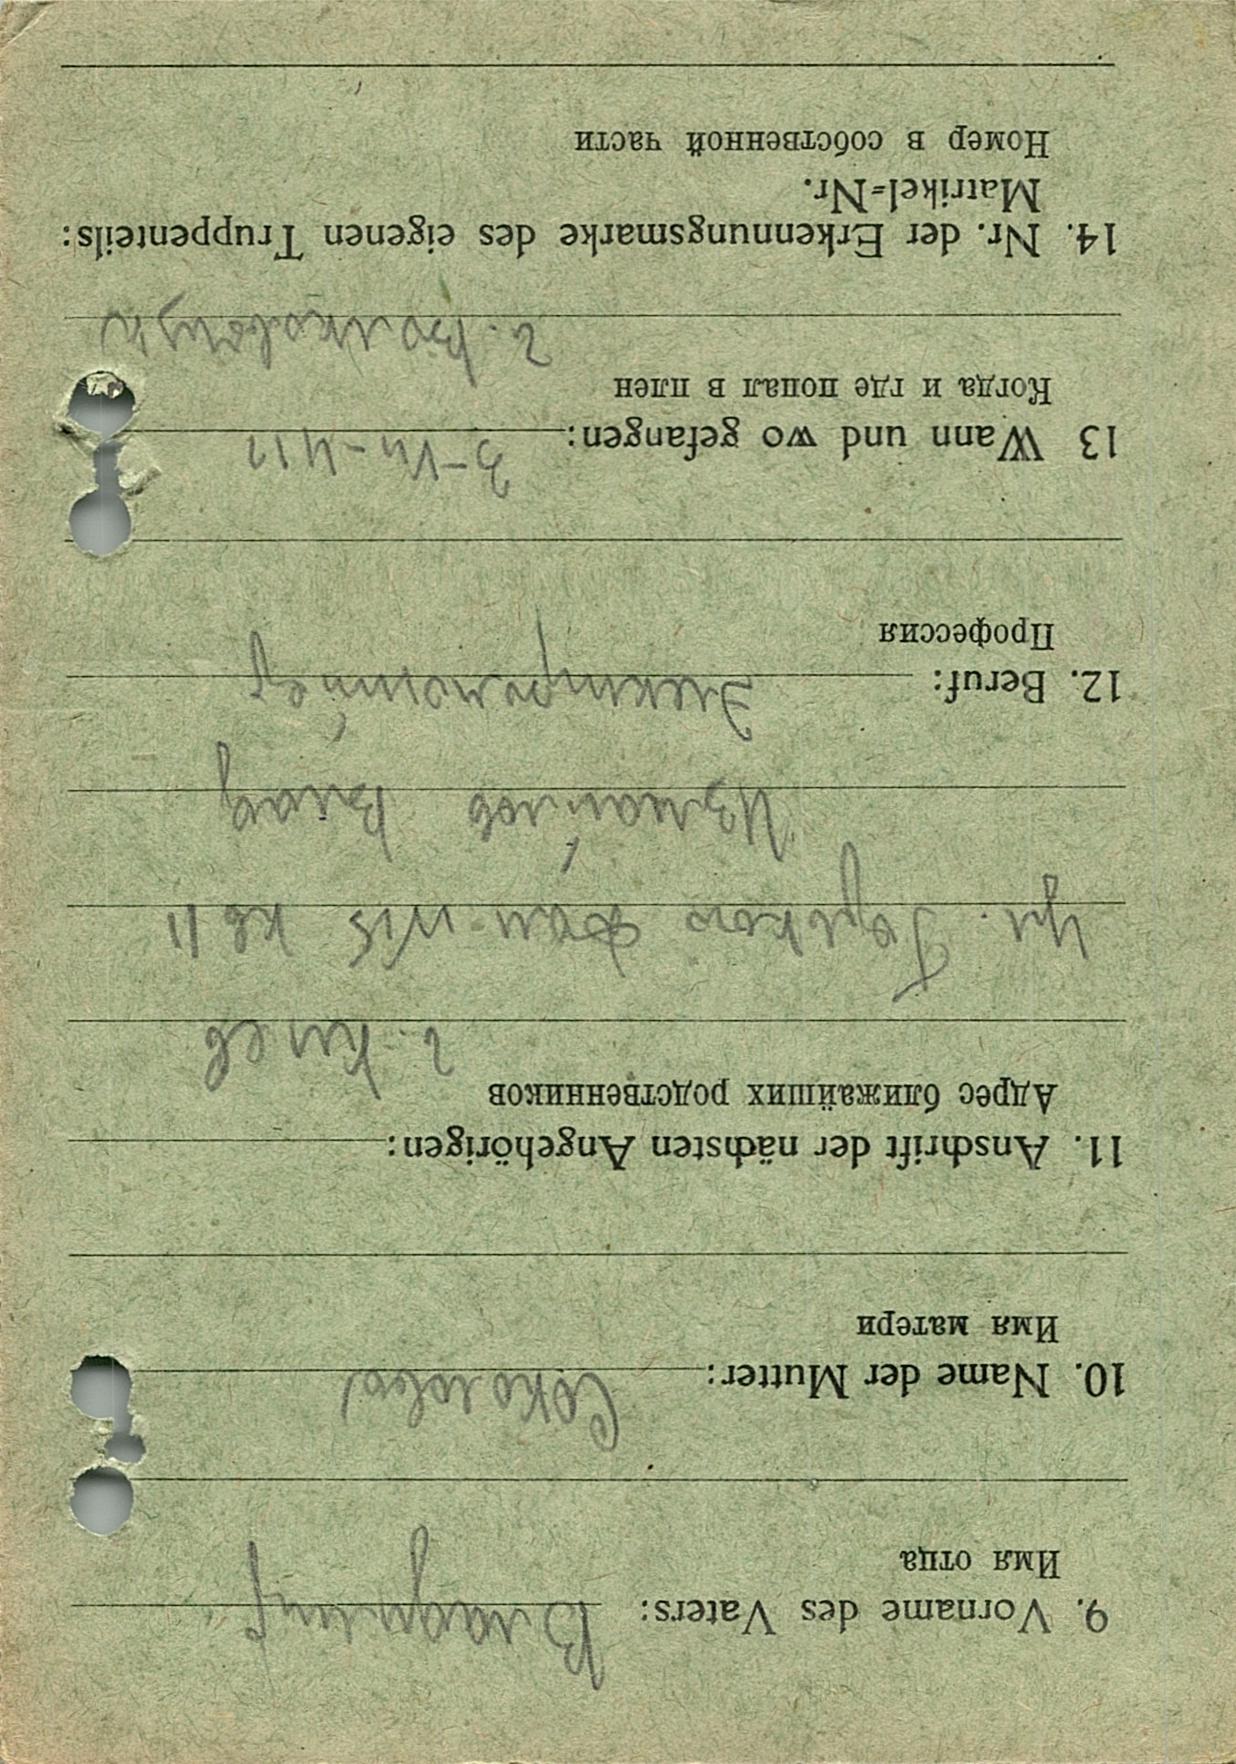 9. Vorname des Vaters: Владимир
Имя отца
10. Name der Mutter: Соколова
Имя матери
11. Anschrift der nächsten Angehörigen:
Адрес ближайших родственников
г. Киев
ул. Горького Дом №15 кв 11
Измайлов Влад
12. Beruf: Электромонтер
Профессия
13 Wann und wo gefangen: 3-VII-41
Когда и где попал в плен
г.
14. Nr. der Erkennungsmarke des eigenen Truppenteils:
Matrikel-Nr.
Номер в собственной части